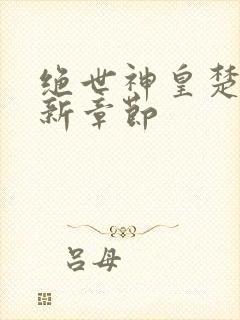 绝世神皇楚
新章节
吕母